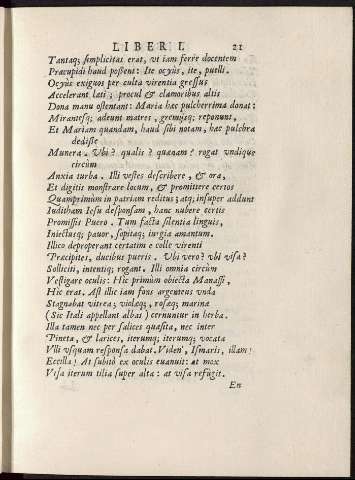 LIBER I. 21
Tantaq; simplicitas erat, vt iam ferre docentem
Præcupidi haud possent: Ite ocyùs, ite, puelli.
Ocyùs exiguos per culta virentia gressus
Accelerant lati; procul & clamoribus altis
Dona manu ostentant: Maria hæc pulcherrima donat:
Mirantesq; adeunt matres, gremijsq; reponunt,
Et Mariam quandam, haud sibi notam, hæc pulcbra
dedisse
Munera. Vbi? qualis? quænam? rogat vndique
circùm
Anxia turba. Illi vestes describere, & ora,
Et digitis monstrare locum, & promittere certos
Quamprimùm in patriam reditus; atq; insuper addunt
Iuditham Iesu desponsam, hanc nubere certis
Promissis Puero. Tum facta silentia linguis,
Iniectusq; pauor, sopitaq; iurgia amantum.
Illico deproperant certatim e colle virenti
Præcipites, ducibus pueris. Vbi vero? vbi visa?
Solliciti, intentiq; rogant. Illi omnia circùm
Vestigare oculis: Hic primùm obiecta Manassi,
Hic erat. Ast illic iam fons argenteus vnda
Stagnabat vitrea; violæq, rosæq; marina
(Sic Itali appellant albas) cernuntur in herba.
Illa tamen nec per salices quæsita, nec inter
Pineta, & larices, iterumq; iterumq; vocata
Vlli vsquam responsa dabat. Viden', Ismaris, illam?
Eccilla! At subitò ex oculis euanuit: at mox
Visa iterum tilia super alta: at visa refùgit.
En